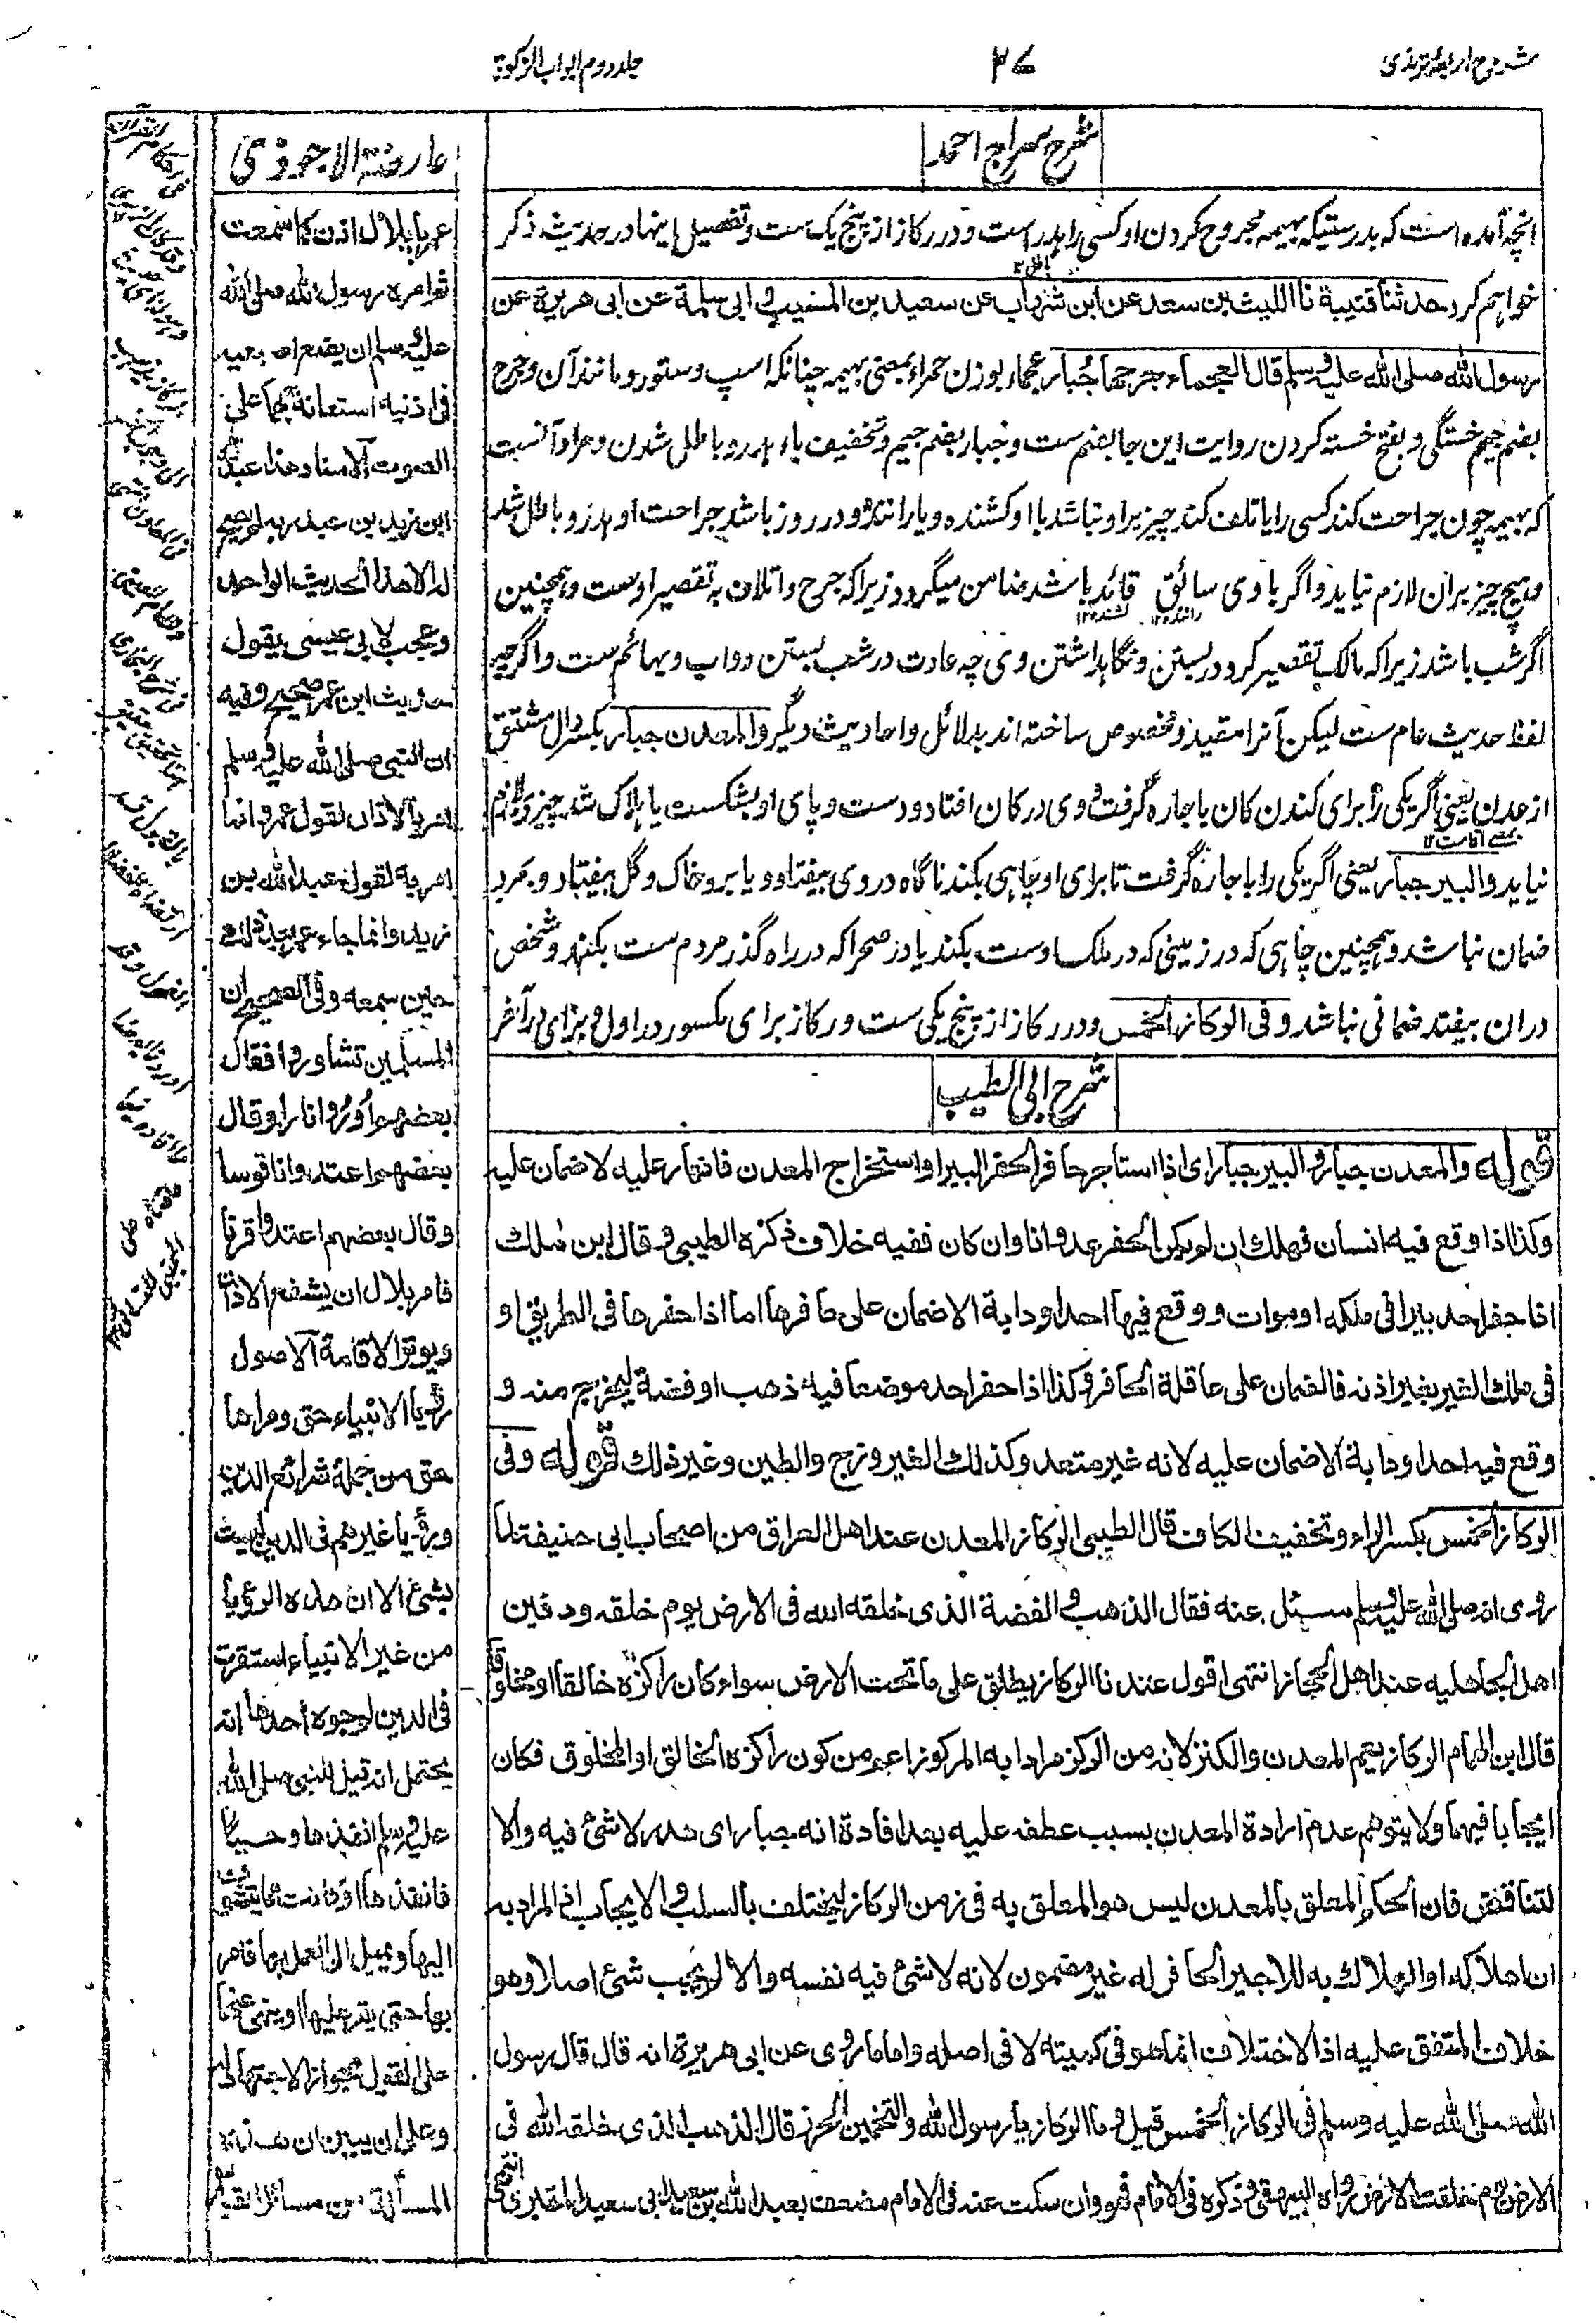 شروح اربعہ ترمذی
۳۷
جلد دوم ابواب الزکوة
شرح سراج احمد
انچه آمده است که بدرستیکه بهیمه مجروح کردن او کسی را هدر است و در رکاز از پنج یک ست و تفصیل اینها در حدیث ذکر
خواهم کرد حدثنا قتیبة نا اللیث بن سعد عن ابن شهاب عن سعید بن المسیب و ابی سلمة عن ابی هریرة عن
رسول الله صلی الله علیه وسلم قال العجماء جرحها جُبار عجماء بوزن حمراء بمعنی بهیمه چنانکه اسپ و ستور و مانند آن و جرح
بضم جیم خستگی و بفتح خسته کردن روایت این جا بضم ست و جبار بضم جیم و تخفیف باء هدر و باطل شدن و مراد آنست
که بهیمه چون جراحت کند کسی را یا تلف کند چیزیرا و نباشد با او کشنده و یا راننده و در روز باشد جراحت او هدر و باطل شد
و هیچ چیز بران لازم نیاید و اگر با وی سائق قائد باشد ضامن میگردد زیرا که جرح و اتلاف به تقصیر اوست و همچنین
اگر شب باشد زیرا که مالک تقصیر کرد در بستن و نگاهداشتن وی چه عادت در شب بستن دواب و بهائم ست و اگرچه
لفظ حدیث عام ست لیکن آنرا مقید و مخصوص ساخته اند بدلائل و احادیث دیگر والمعدن جبار بکسر دال مشتق
از عدن یعنی اگر یکی را برای کندن کان باجاره گرفت و وی در کان افتاد و دست و پای او بشکست یا هلاک شد چیزی لازم
نیاید والبیر جبار یعنی اگر یکی را باجاره گرفت تا برای او چاهی بکند ناگاه در وی بیفتاد و یا برو خاک و گل بیفتاد و بمرد
ضمان نباشد و همچنین چاهی که در زمینی که در ملک اوست بکند یا در صحرا که در راه گذر مردم ست بکند و شخص
دران بیفتد ضمانی نباشد و فی الرکاز الخمس و در رکاز از پنج یکی ست و رکاز برای مکسور در اول و بزای در آخر
شرح ابی الطیب
قوله والمعدن جبار والبیر جبار ای اذا استاجر حافرا لحفر البیر او استخراج المعدن فانهار علیه لا ضمان علیه
وکذا اذا وقع فیه انسان فهلک ان لم یکن الحفر عدوانا وان کان ففیه خلاف ذکره الطیبی و قال ابن ملک
اذا حفر احد بیرا فی ملکه او موات و وقع فیها احد او دابة لا ضمان علی حافرها اما اذا حفرها فی الطریق او
فی ملک الغیر بغیر اذنه فالضمان علی عاقلة الحافر وکذا اذا حفر احد موضعا فیه ذهب او فضة لیخرج منه و
وقع فیه احد او دابة لا ضمان علیه لانه غیر متعد وکذلک الفیروزج والطین وغیر ذلک قوله وفی
الرکاز الخمس بکسر الراء وتخفیف الکاف قال الطیبی الرکاز المعدن عند اهل العراق من اصحاب ابی حنیفة لما
روی انه صلی الله علیه وسلم سئل عنه فقال الذهب والفضة الذی خلقه الله فی الارض یوم خلقه ودفین
اهل الجاهلیه عند اهل الحجاز انتهی اقول عندنا الرکاز یطلق علی ما تحت الارض سواء کان راکزه خالقا او مخلوقا
قال ابن الهمام الرکاز یعم المعدن والکنز لانه من الرکز مرادا به المرکوز اعم من کون راکزه الخالق او المخلوق فکان
ایجابا فیهما ولا یتوهم عدم ارادة المعدن بسبب عطفه علیه بعد افادة انه جبار ای هدر لا شئ فیه والا
لتناقض فان الحکم المعلق بالمعدن لیس هو المعلق به فی زمن الرکاز لیختلف بالسلب والایجاب اذ المراد به
ان اهلاکه او الهلاک به للاجیر الحافر له غیر مضمون لانه لا شئ فیه نفسه والا لم یجب شئ اصلا وهو
خلاف المتفق علیه اذ الاختلاف انما هو فی کمیته لا فی اصله واما ما روی عن ابی هریرة انه قال قال رسول
الله صلی الله علیه وسلم فی الرکاز الخمس قیل وما الرکاز یا رسول الله قال الذهب الذی خلقه الله فی
الارض یوم خلقت الارض رواه البیهقی وذکره فی الامام فهو وان سکت عنه فی الامام مضعف بعبد الله بن سعید بن ابی سعید المقبری انتهی
عارضة الاحوذی
عمر یا بلال اذن کما سمعت
ثم امره رسول الله صلی الله
علیه وسلم ان یضع اصبعیه
فی اذنیه استعانة بهما علی
الصوت الاسناد هذا عبد الله
ابن زید بن عبد ربه لم یصح
له الا هذا الحدیث الواحد
وعجب لابی عیسی یقول
حدیث ابن عمر صحیح وفیه
ان النبی صلی الله علیه وسلم
امر بالاذان لقول عمر وانما
امر به لقول عبد الله بن
زید وانما جاء عمر بعد ذلک
حین سمعه وفی الصحیح ان
المسلمین تشاوروا فقال
بعضهم اوروا نارا وقال
بعضهم اتخذوا ناقوسا
وقال بعضهم اتخذوا قرنا
فامر بلال ان یشفع الاذان
ویوتر الاقامة الاصول
رؤیا الانبیاء حق ومراها
حق من جملة شرائع الدین
ورؤیا غیرهم فی الدین لیست
بشئ الا ان هذه الرؤیا
من غیر الانبیاء استقرت
فی الدین لوجوه احدها انه
یحتمل انه قیل للنبی صلی الله
علیه وسلم انفذها وحسبها
الیها ویمیل الی العمل بها فامر
بها حتی یقر علیها او ینهی عنها
علی القول بجواز الاجتهاد له